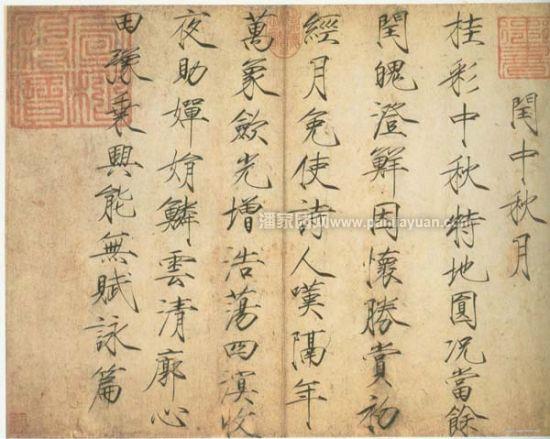 閏中秋月
桂彩中秋特地圓況當餘
閏魄澄鮮因懷勝賞初
經月免使詩人嘆隔年
萬象歛光增浩蕩四溟收
夜助嬋娟鱗雲清廓心
田豫乘興能無賦詠篇
潘家园网www.panjiayuan.com